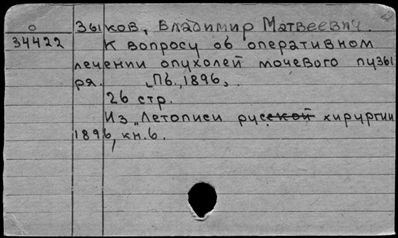 о Зыков, Владимир Матвеевич.
34422 К вопросу об оперативном
лечении опухолей мочевого пузы
ря. „Пб., 1896,.
26 стр.
Из „Летописи русской хирургии
1896, кн. 6.